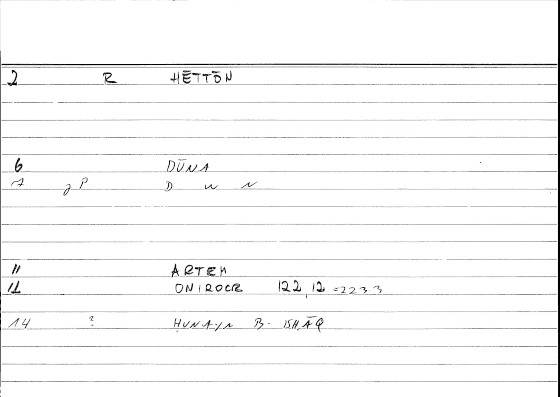 2 R HĒTTŌN
6 DŪNA
7 gP D w N
11 ARTEM
12 ONIROCR 122,12 =2233
14 ? ḤUNAYN B. ISḤĀQ